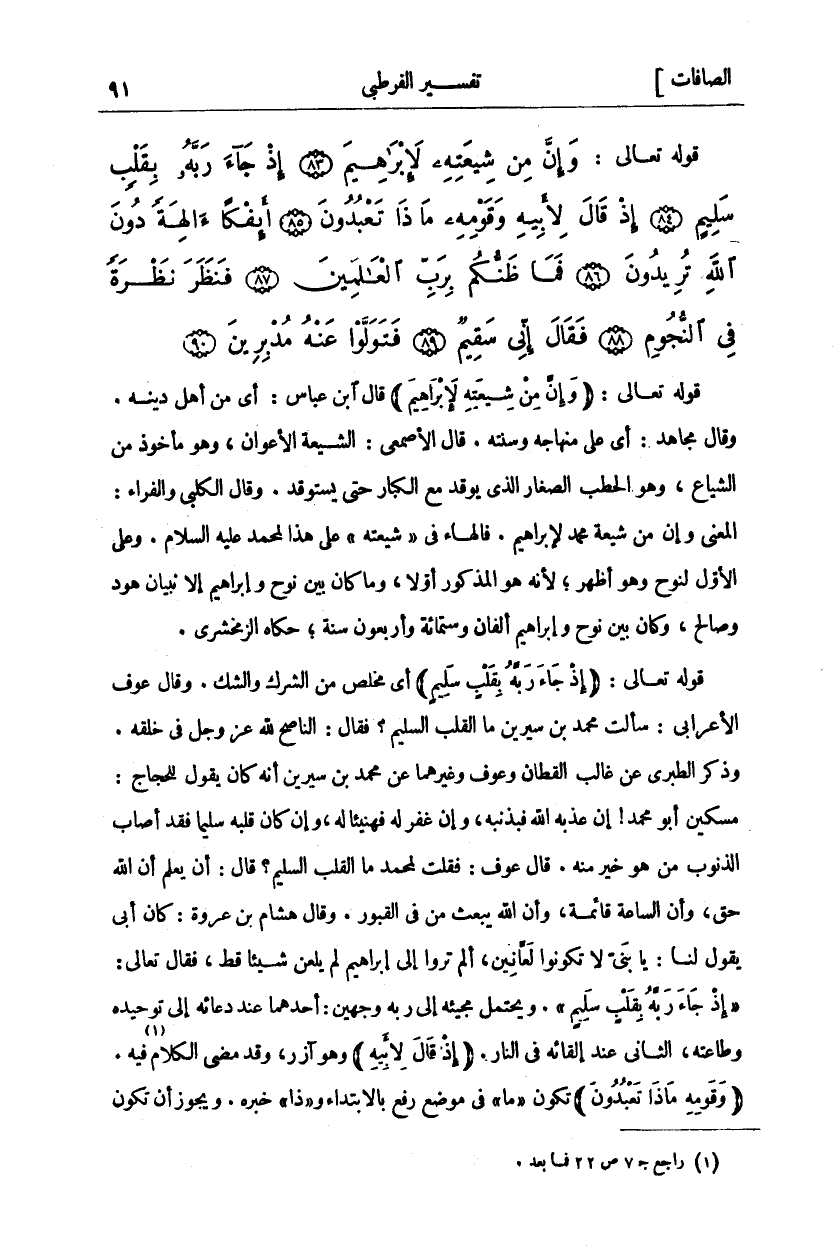 الصافات ] تفسير القرطبي ٩١
قوله تعالى : وَإِنَّ مِن شِيعَتِهِۦ لَإِبْرَٰهِيمَ ٨٣ إِذْ جَآءَ رَبَّهُۥ بِقَلْبٍ
سَلِيمٍ ٨٤ إِذْ قَالَ لِأَبِيهِ وَقَوْمِهِۦ مَاذَا تَعْبُدُونَ ٨٥ أَئِفْكًا ءَالِهَةً دُونَ
ٱللَّهِ تُرِيدُونَ ٨٦ فَمَا ظَنُّكُم بِرَبِّ ٱلْعَٰلَمِينَ ٨٧ فَنَظَرَ نَظْرَةً
فِى ٱلنُّجُومِ ٨٨ فَقَالَ إِنِّى سَقِيمٌ ٨٩ فَتَوَلَّوْا عَنْهُ مُدْبِرِينَ ٩٠
قوله تعالى : ﴿ وَإِنَّ مِنْ شِيعَتِهِ لَإِبْرَاهِيمَ ﴾ قال ٱبن عباس : أى من أهل دينه .
وقال مجاهد : أى على منهاجه وسنته . قال الأصمعى : الشيعة الأعوان ، وهو مأخوذ من
الشياع ، وهو الحطب الصغار الذى يوقد مع الكبار حتى يستوقد . وقال الكلبى والفراء :
المعنى وإن من شيعة محمد لإبراهيم . فالهاء فى « شيعته » على هذا لمحمد عليه السلام . وعلى
الأوّل لنوح وهو أظهر ؛ لأنه هو المذكور أوّلا ، وما كان بين نوح وإبراهيم إلا نبيان هود
وصالح ، وكان بين نوح وإبراهيم ألفان وستمائة وأربعون سنة ؛ حكاه الزمخشرى .
قوله تعالى : ﴿ إِذْ جَاءَ رَبَّهُ بِقَلْبٍ سَلِيمٍ ﴾ أى مخلص من الشرك والشك . وقال عوف
الأعرابى : سألت محمد بن سيرين ما القلب السليم ؟ فقال : الناصح لله عز وجل فى خلقه .
وذكر الطبرى عن غالب القطان وعوف وغيرهما عن محمد بن سيرين أنه كان يقول للحجاج :
مسكين أبو محمد! إن عذبه الله فبذنبه، وإن غفر له فهنيئا له ،وإن كان قلبه سليما فقد أصاب
الذنوب من هو خير منه . قال عوف : فقلت لمحمد ما القلب السليم؟ قال : أن يعلم أن الله
حق، وأن الساعة قائمة، وأن الله يبعث من فى القبور . وقال هشام بن عروة : كان أبى
يقول لنا : يا بَنىّ لا تكونوا لَعَّانِين، ألم تروا إلى إبراهيم لم يلعن شيئا قط ، فقال تعالى:
«إِذْ جَاءَ رَبَّهُ بِقَلْبٍ سَلِيمٍ» . ويحتمل مجيئه إلى ربه وجهين: أحدهما عند دعائه إلى توحيده
وطاعته، الثانى عند إلقائه فى النار. ﴿ إِذْ قَالَ لِأَبِيهِ ﴾ وهو آزر، وقد مضى الكلام فيه (١) .
﴿ وَقَوْمِهِ مَاذَا تَعْبُدُونَ ﴾ تكون «ما» فى موضع رفع بالابتداء و«ذا» خبره . ويجوز أن تكون
(١) راجع جـ ٧ ص ٢٢ فما بعد .